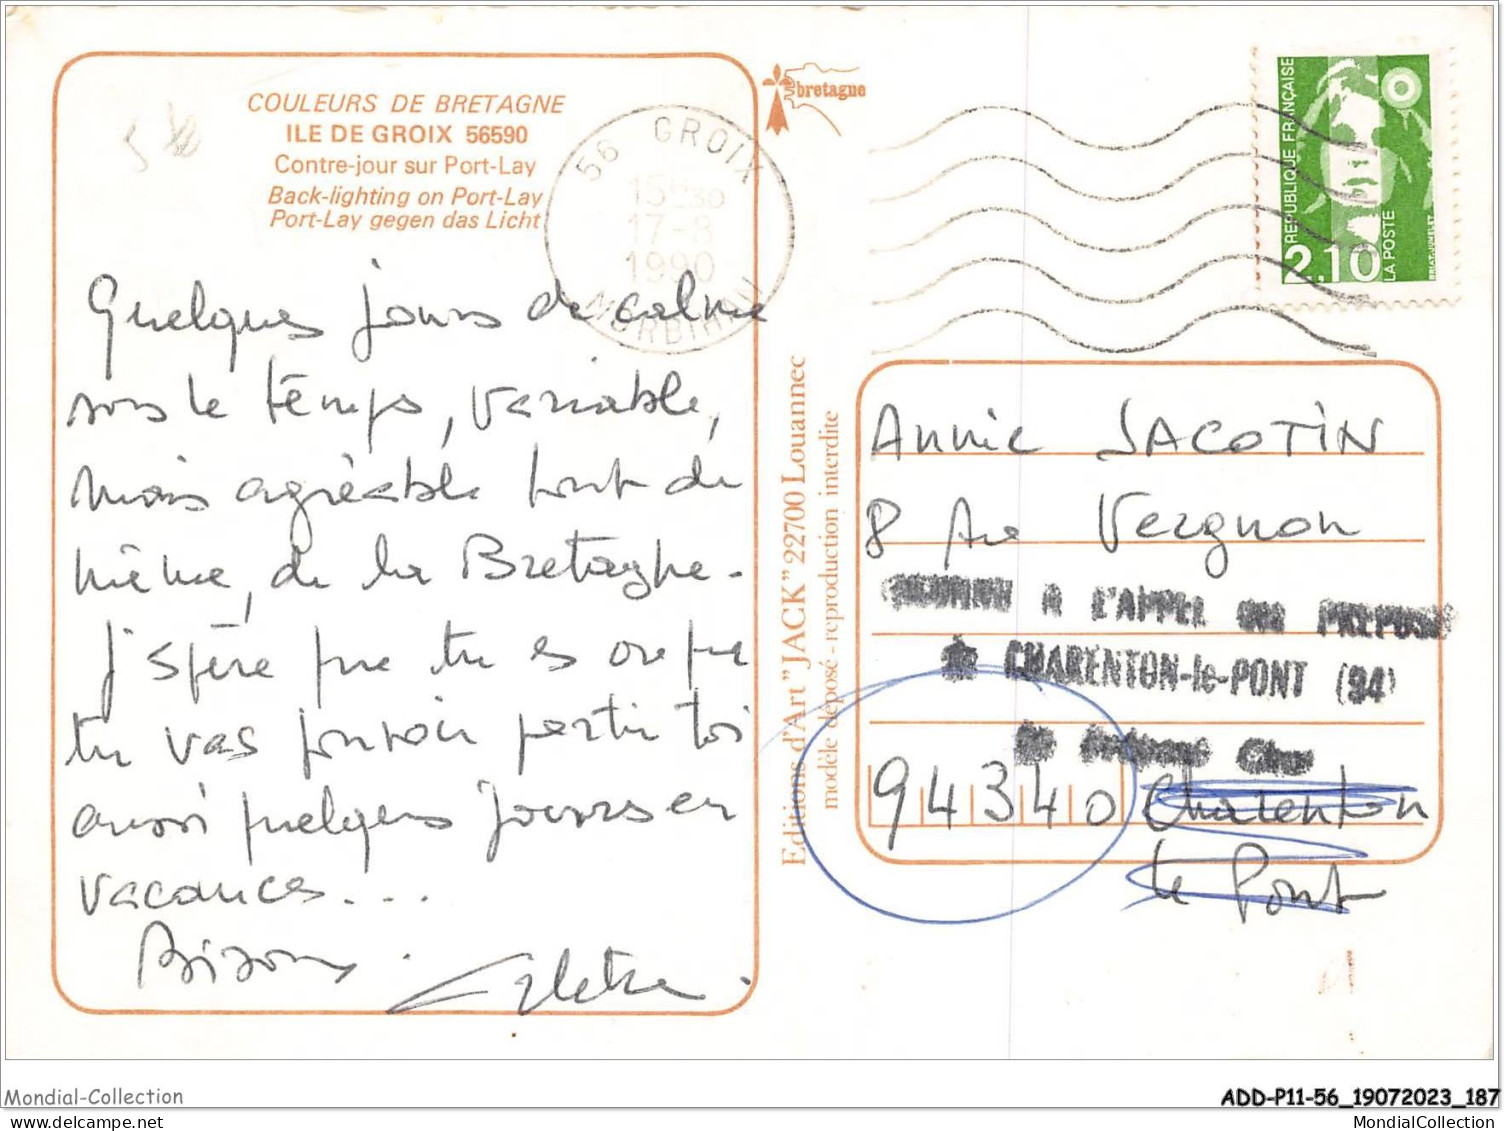 COULEURS DE BRETAGNE
ILE DE GROIX 56590
Contre-jour sur Port-Lay
Back-lighting on Port-Lay
Port-Lay gegen das Licht
Quelques jours de calme
sous le temps, variable,
mais agréable tout de
même, de la Bretagne.
J'espère que tu es
tu vas pouvoir partir toi
aussi quelques jours en
vacances...
Bisous.
56 GROIX
15H30
17-8
1990
MORBIHAN
bretagne
REPUBLIQUE FRANÇAISE
2,10
LA POSTE
BRIAT-JUMELET
Editions d'Art "JACK" 22700 Louannec
modèle déposé - reproduction interdite
Annie JACOTIN
8 Ave Vergnon
A L'APPEL DES PREPOSES
de CHARENTON-le-PONT (94)
94340 Charenton
le Pont
Mondial-Collection
ADD-P11-56_19072023_187
MondialCollection